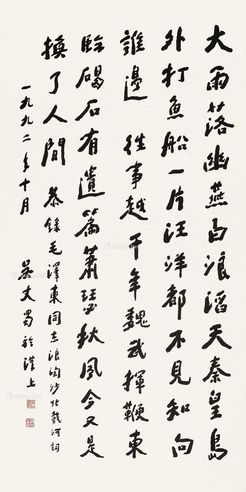 大雨落幽燕白浪滔天秦皇島
外打魚船一片汪洋都不見知向
誰邊往事越千年魏武揮鞭東
臨碣石有遺篇蕭瑟秋風今又是
換了人間 恭錄毛澤東同志浪淘沙北戴河詞
一九九二年十月 吳丈蜀於漢上